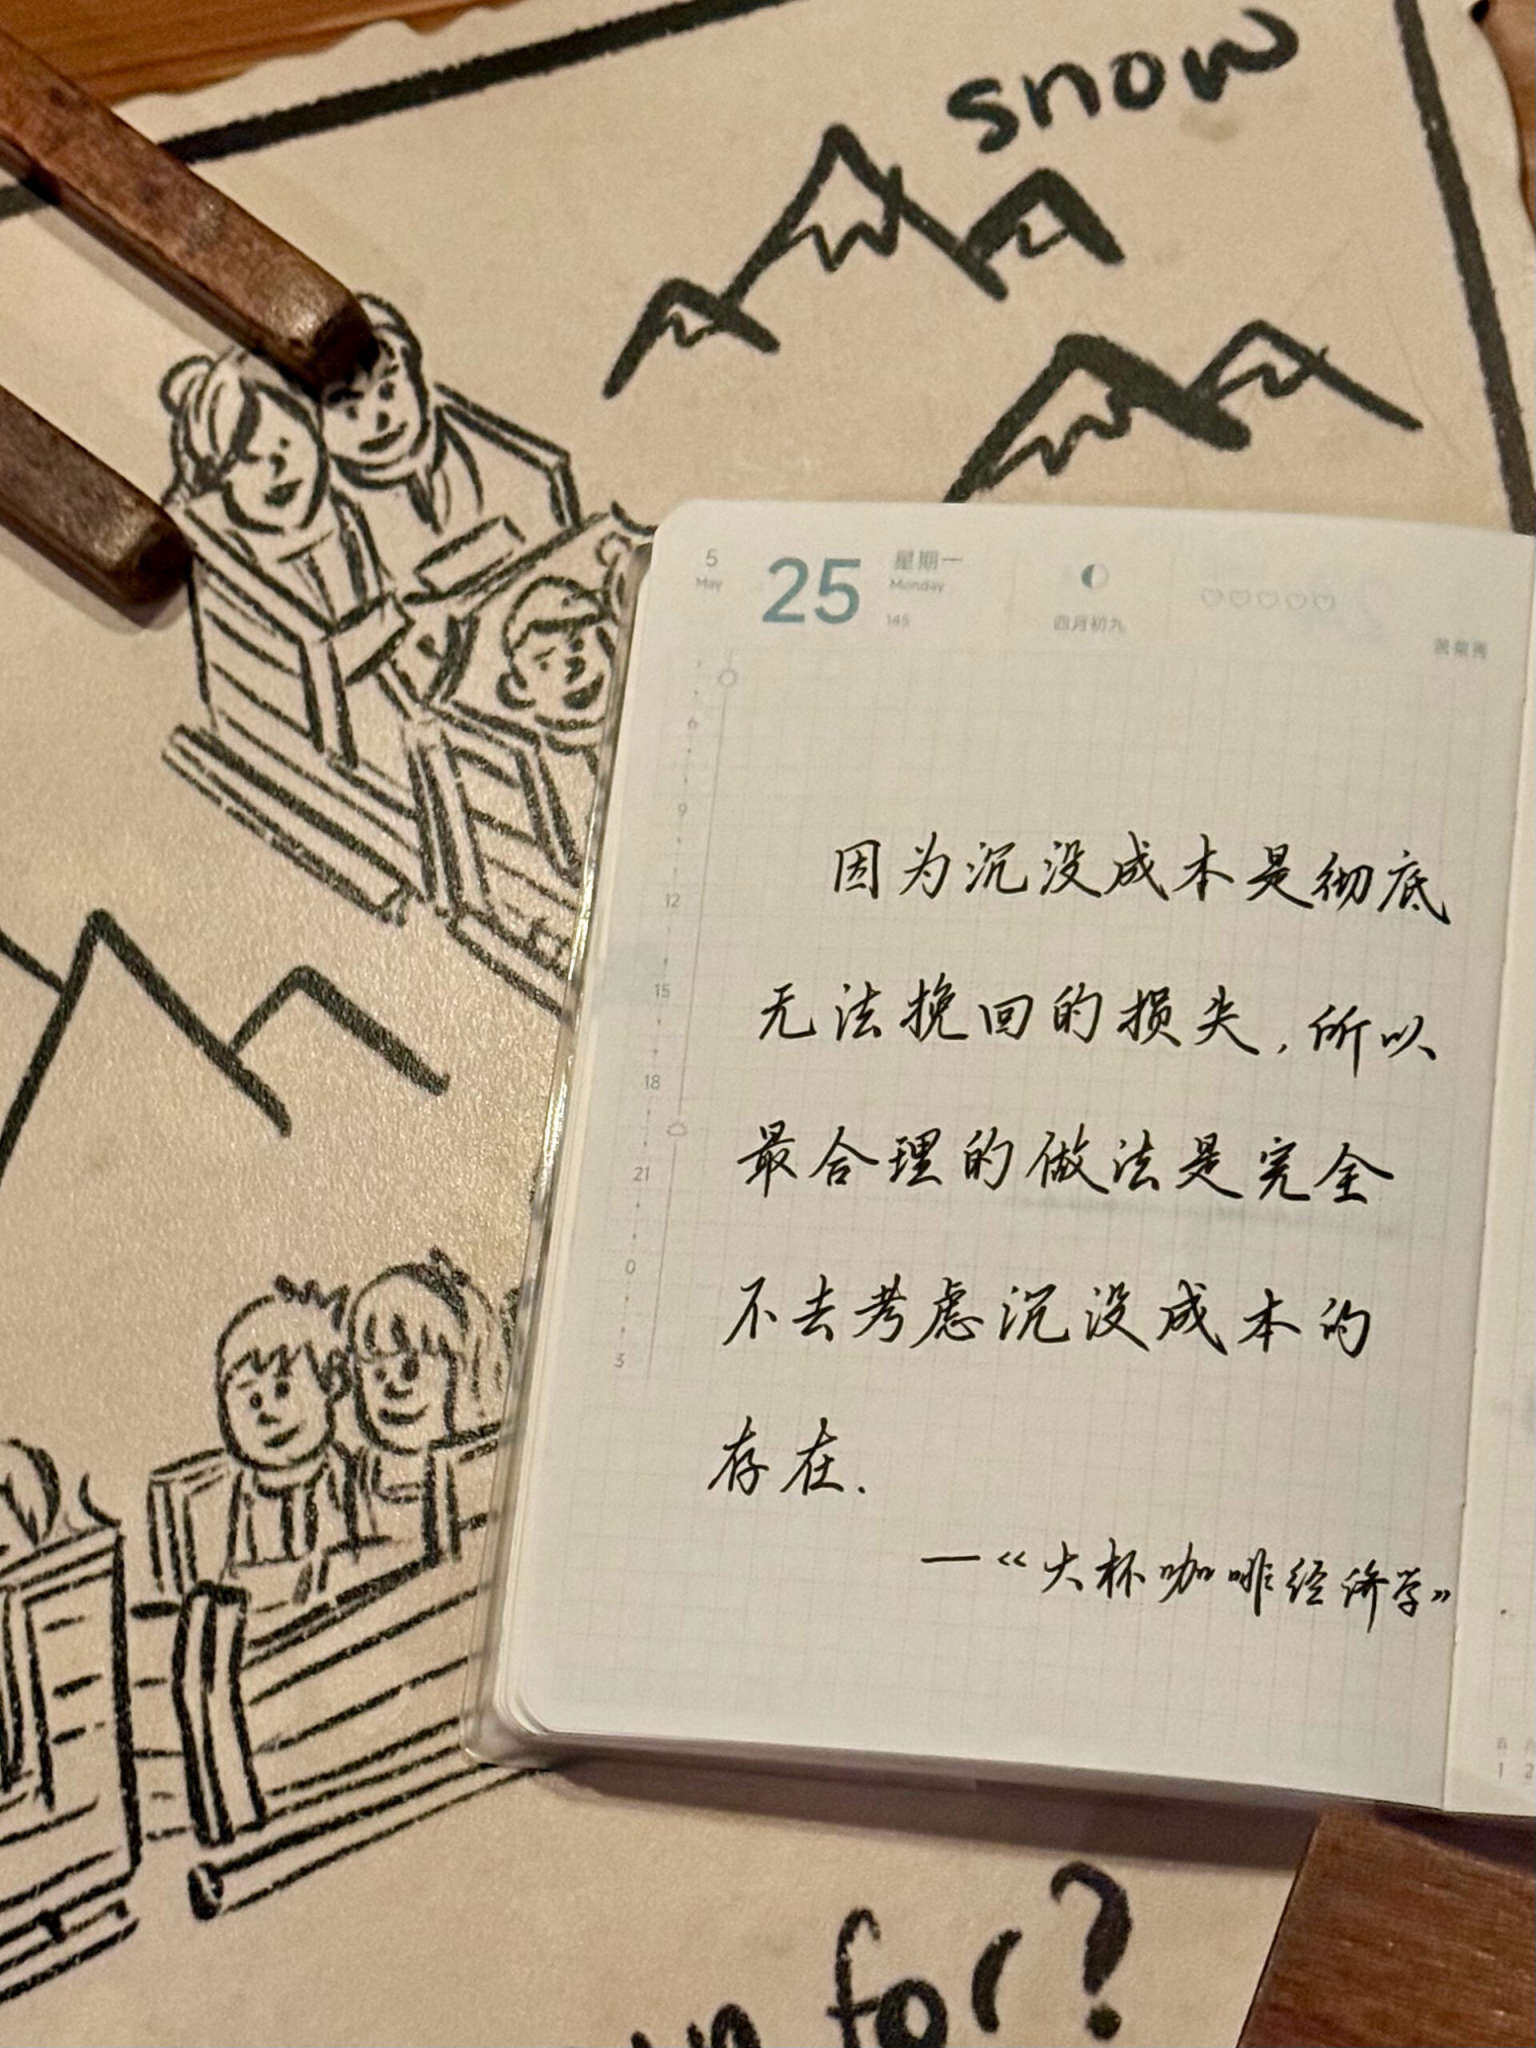 snow
5
May
25
星期一
Monday
145
四月初九
6
9
12
15
18
21
0
3
因为沉没成本是彻底
无法挽回的损失,所以
最合理的做法是完全
不去考虑沉没成本的
存在.
—《大杯咖啡经济学》
for?